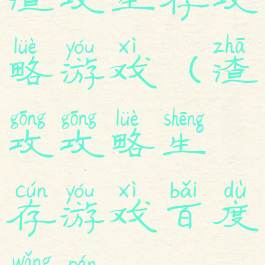 渣攻生存攻
lüè yóu xì zhā
略游戏（渣
gōng gōng lüè shēng
攻攻略生
cún yóu xì bǎi dù
存游戏百度
wǎng pán